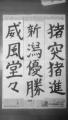 猪突猪進
新潟優勝
威風堂々